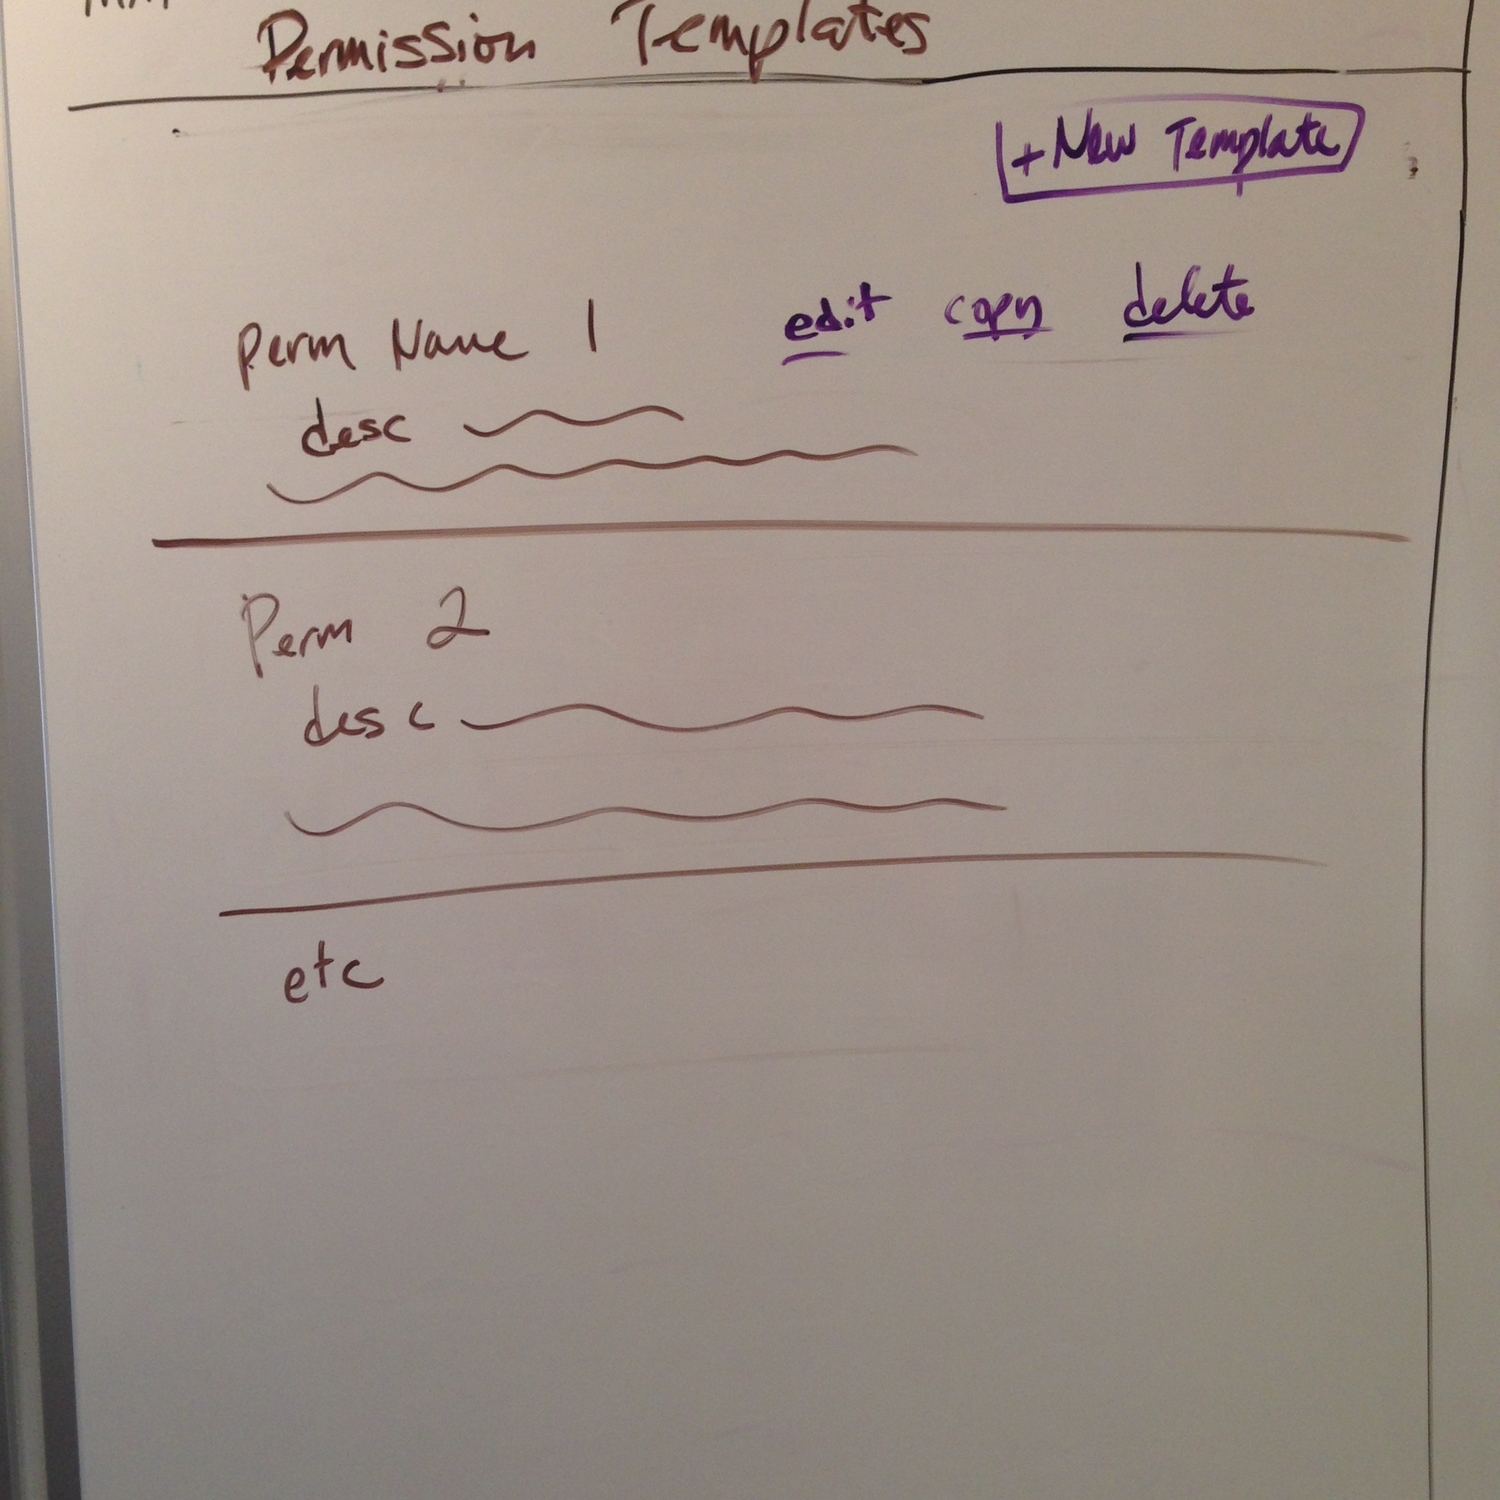 Permission Templates
+ New Template
Perm Name 1 edit copy delete
desc
Perm 2
desc
etc